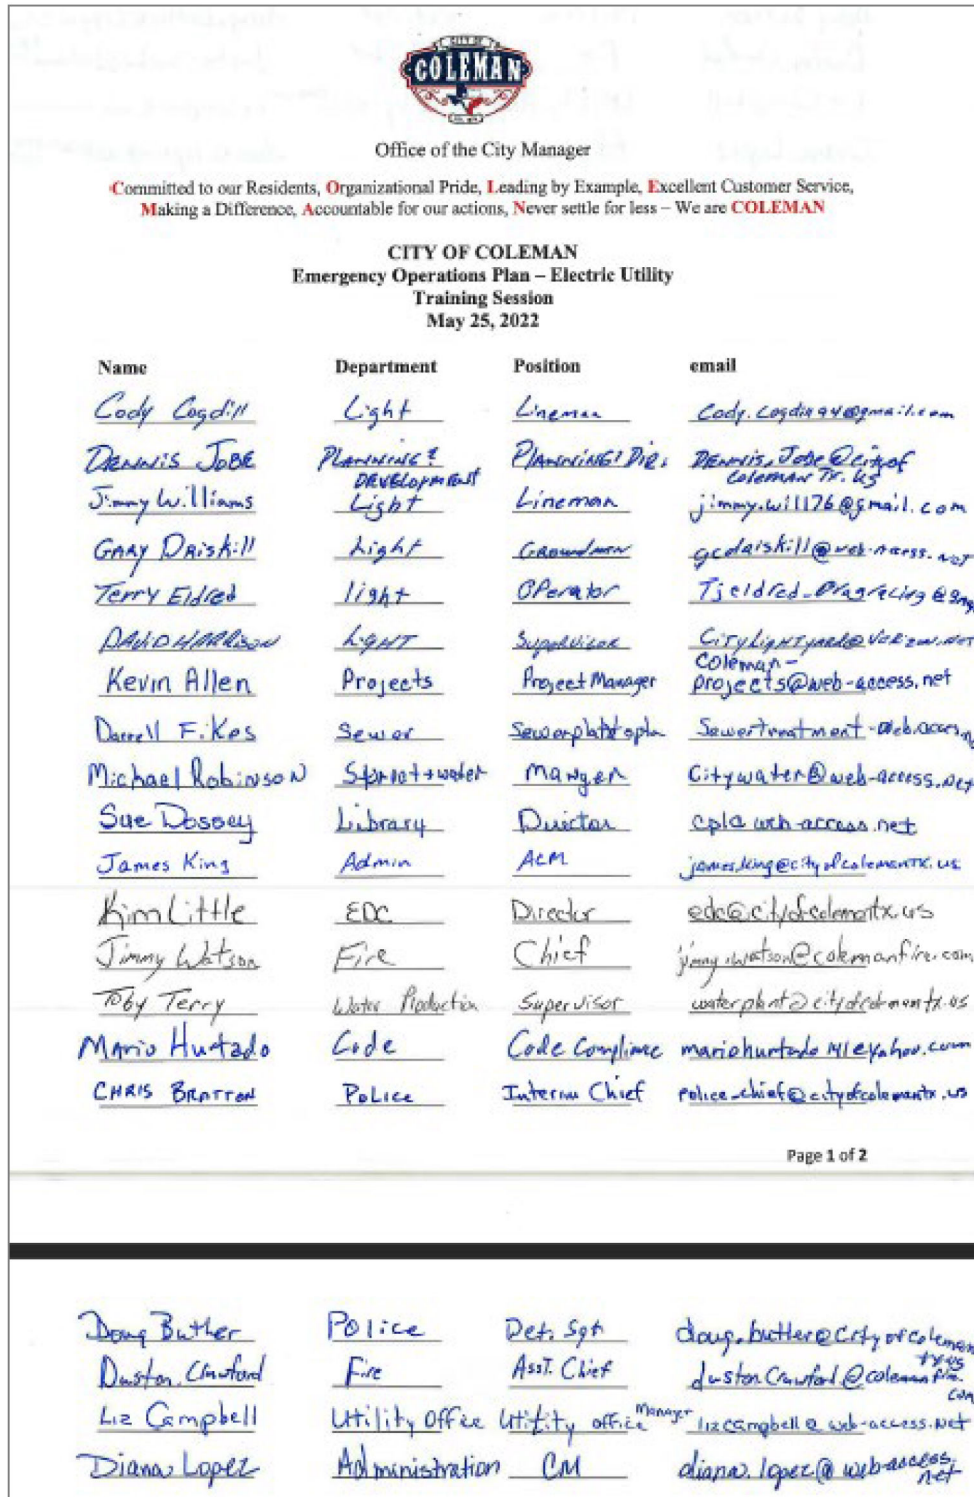 CITY OF
COLEMAN
Office of the City Manager
Committed to our Residents, Organizational Pride, Leading by Example, Excellent Customer Service,
Making a Difference, Accountable for our actions, Never settle for less – We are COLEMAN
CITY OF COLEMAN
Emergency Operations Plan – Electric Utility
Training Session
May 25, 2022
Name Department Position email
Cody Cogdill Light Lineman
DENNIS JOBE PLANNING & DEVELOPMENT PLANNING DIR. DENNIS.JOBE@cityof
COLEMAN TX.US
Jimmy Williams Light Lineman jimmy.will176@gmail.com
GARY DRISKILL Light Groundman
Terry Eldred light OPerator
DAVID HARRISON LIGHT Supervisor CITYLIGHTYARD@VERIZON.NET
Kevin Allen Projects Project Manager coleman-
projects@web-access.net
Darrell Fikes Sewer
Michael Robinson Street + water Manger Citywater@web-access.net
Sue Dossey Library Director web-access.net
James King Admin ACM james.king@cityofcolemantx.us
Kim Little EDC Director edc@cityofcolemantx.us
Jimmy Watson Fire Chief jimmy.watson@colemanfire.com
Toby Terry Water Production Supervisor waterplant@cityofcolemantx.us
Mario Hurtado Code Code Complince
CHRIS BRATTON POLICE Interim Chief police-chief@cityofcolemantx.us
Page 1 of 2
Doug Buther Police Det. Sgt doug.buther@cityofcoleman
tx.us
Duston Crawford Fire Asst. Chief duston.crawford@colemanfire.
com
Liz Campbell Utility Office Utility office Manager lizcampbell@web-access.net
Diana Lopez Administration CM diana.lopez@web-access.
net